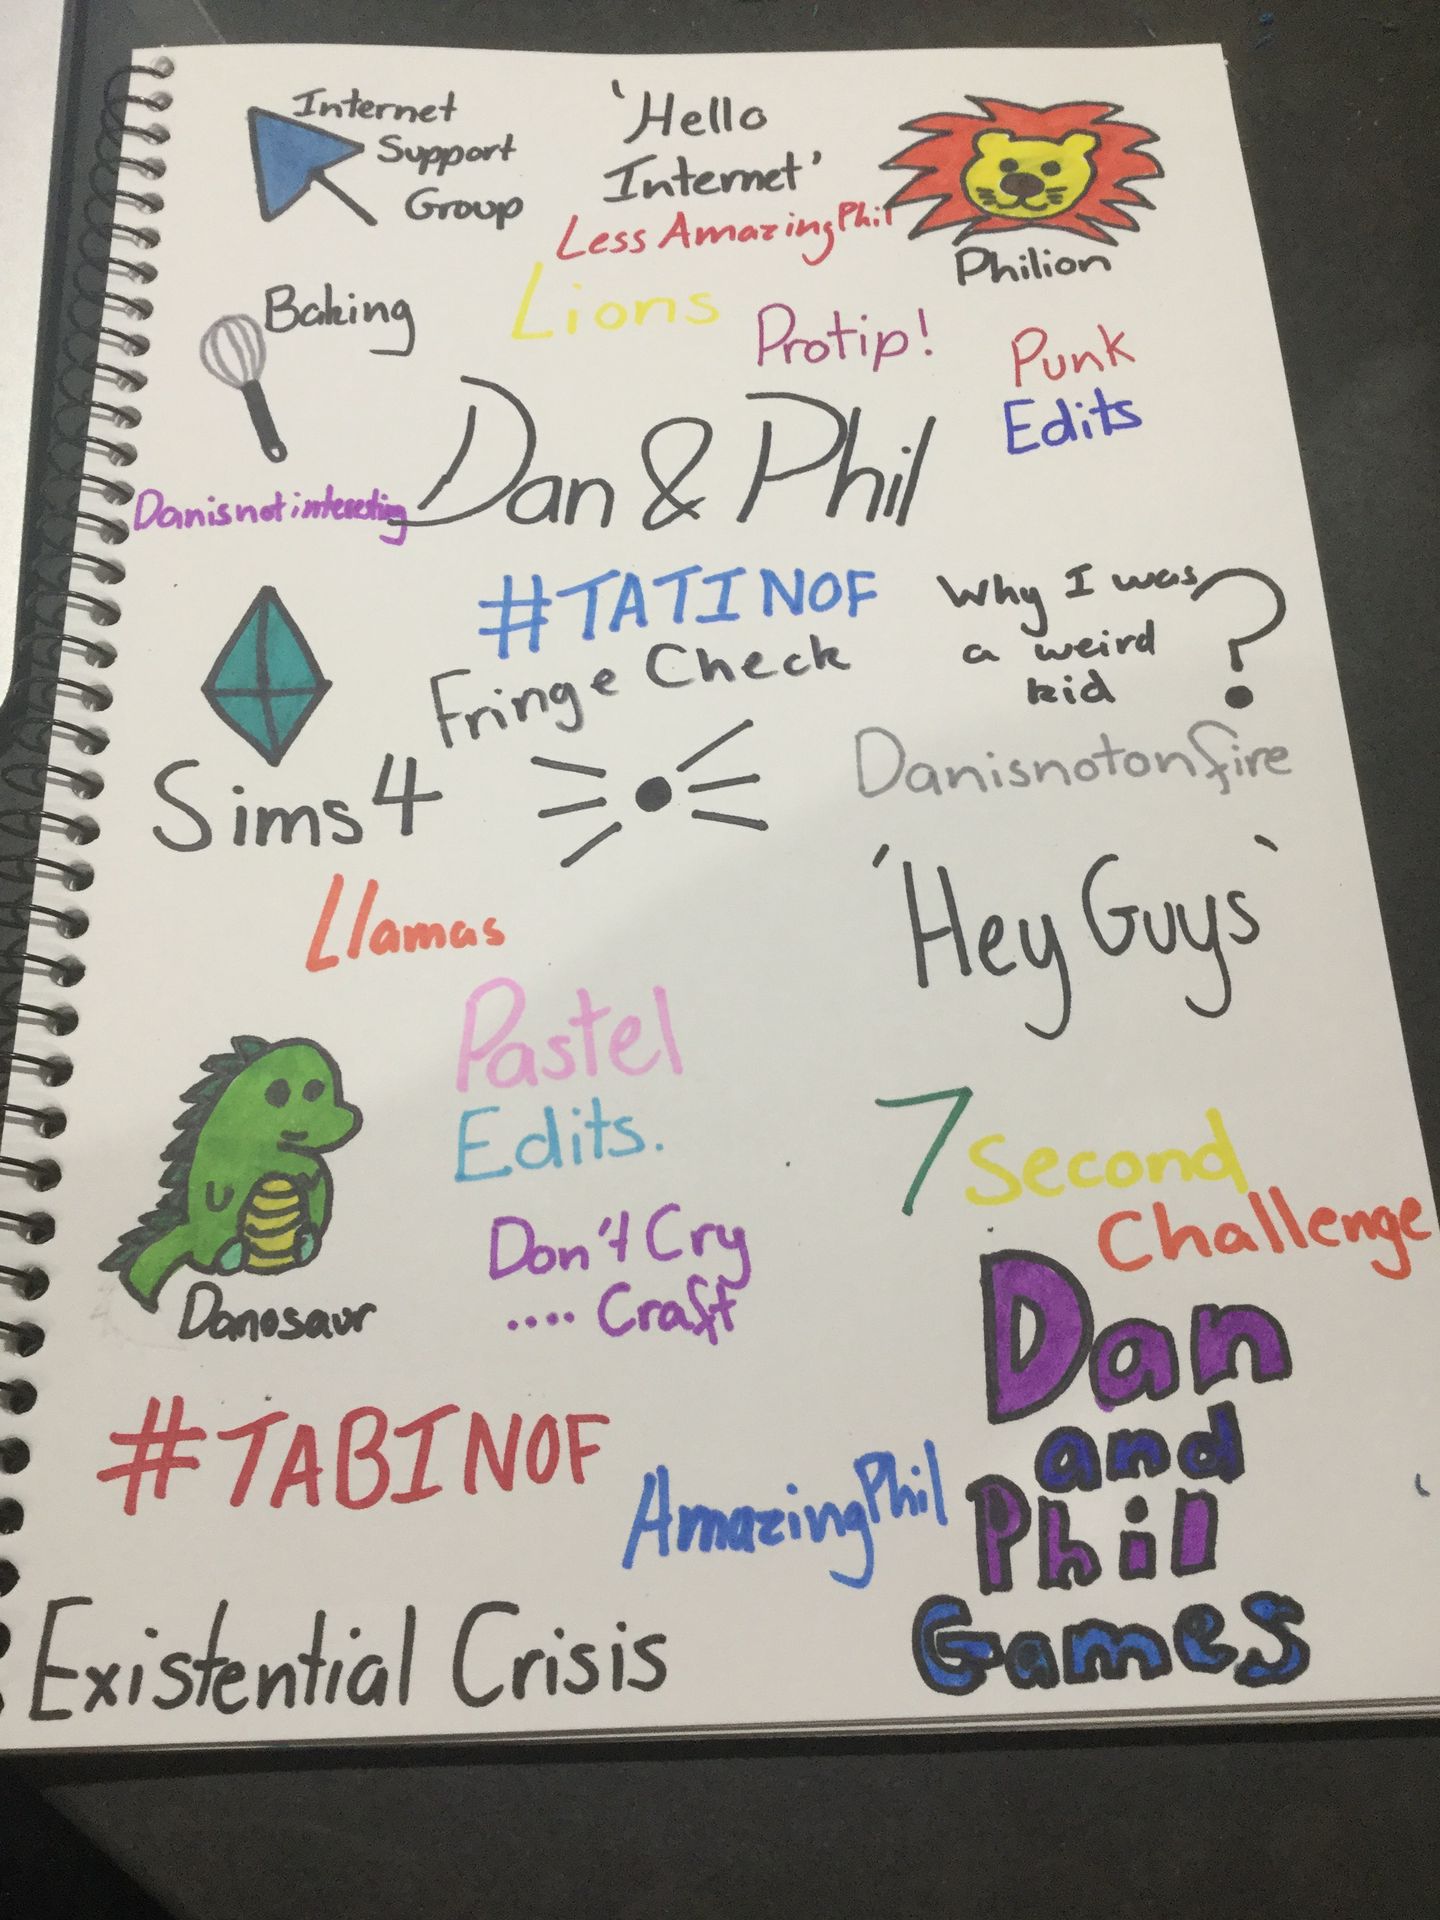 Internet
Support
Group
'Hello
Internet'
Less AmazingPhil
Philion
Baking
Lions
Protip!
Punk
Edits
Dan & Phil
Danisnotinteresting
#TATINOF
Fringe Check
Why I was
a weird
kid
?
Sims 4
Danisnotonfire
'Hey Guys'
Llamas
Pastel
Edits.
7 Second
Challenge
Don't Cry
.... Craft
Danosaur
Dan
and
Phil
Games
#TABINOF
AmazingPhil
Existential Crisis